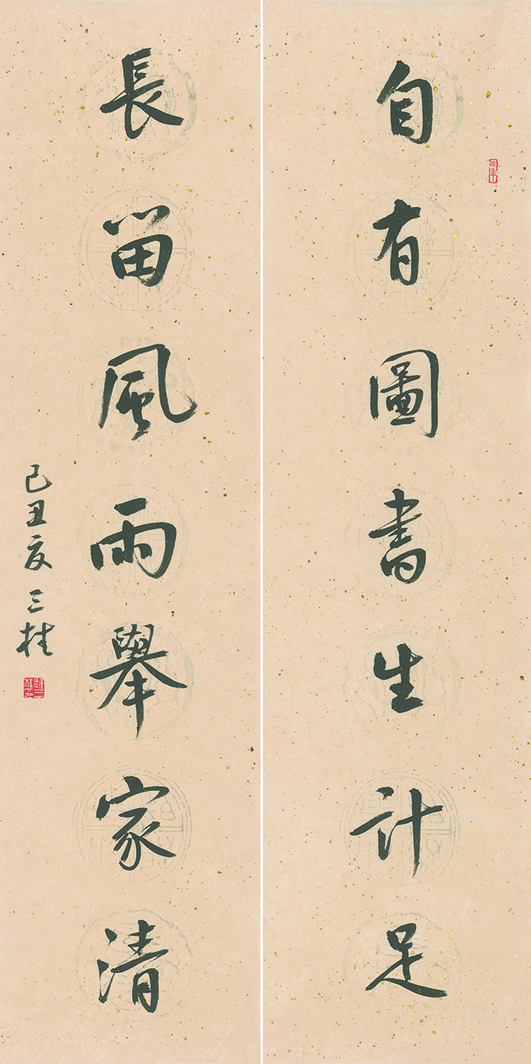 自有圖書生計足
長留風雨舉家清
己丑夏三桂